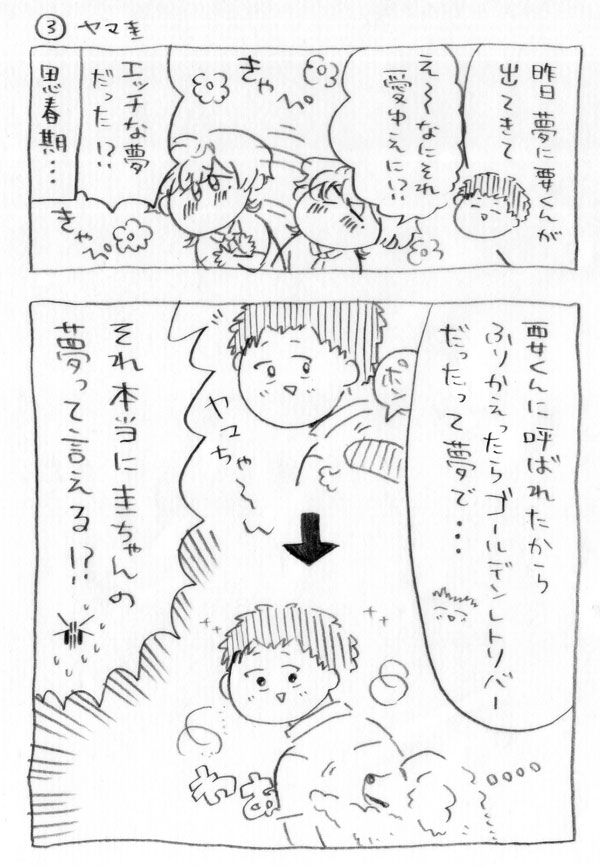 ③ ヤマ圭
昨日夢に要くんが
出てきて
え〜〜なにそれ
愛ゆえに!?
きゃっぺ
エッチな夢
だった!?
思春期…
きゃっぺ
要くんに呼ばれたから
ふりかえったらゴールデンレトリバー
だったって夢で…
ポン
ヤマちゃ〜〜ん
それ本当に圭ちゃんの
夢って言える!?
わぁ